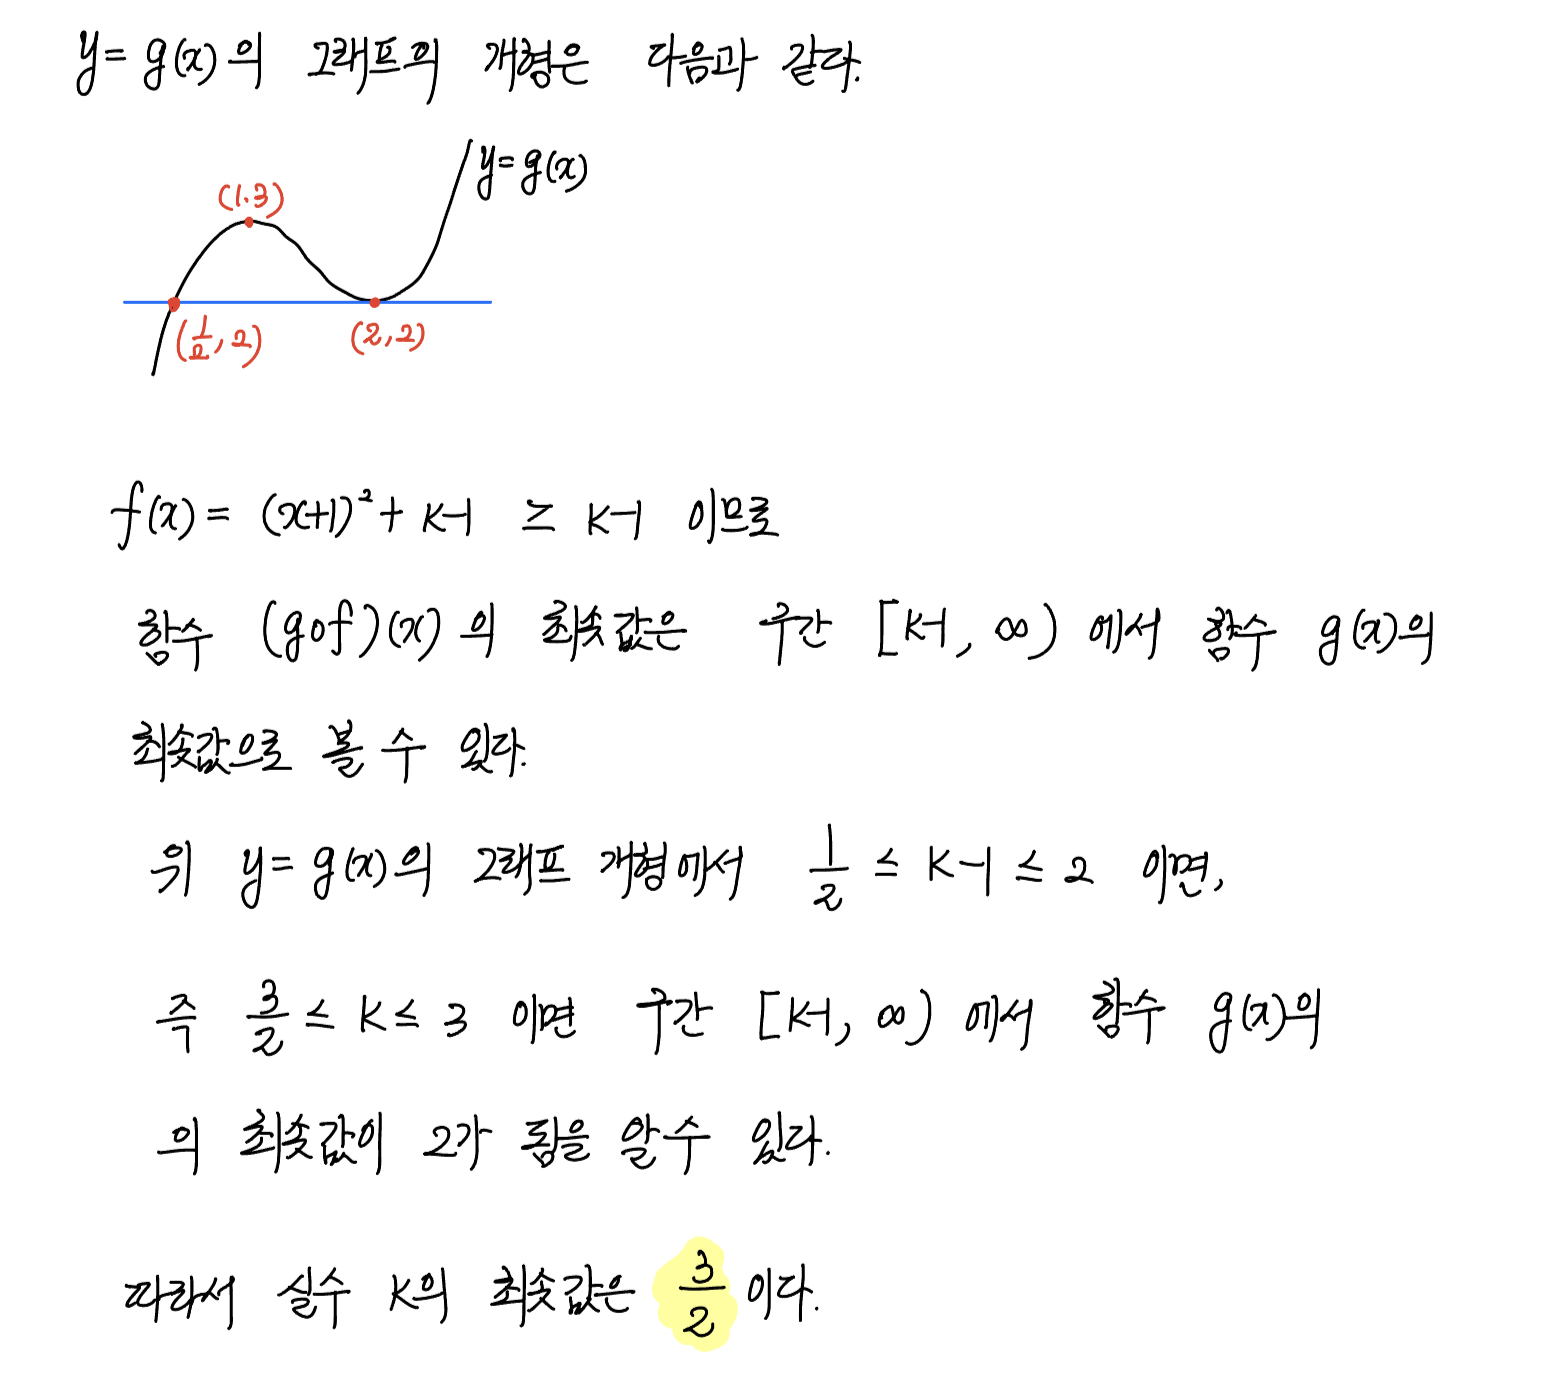 y = g(x)의 그래프의 개형은 다음과 같다.
y = g(x)
(1.3)
(1/2, 2) (2,2)
f(x) = (x+1)² + k-1 ≥ k-1 이므로
함수 (g∘f)(x)의 최솟값은 구간 [k-1, ∞) 에서 함수 g(x)의
최솟값으로 볼 수 있다.
위 y = g(x)의 그래프 개형에서 1/2 ≤ k-1 ≤ 2 이면,
즉 3/2 ≤ k ≤ 3 이면 구간 [k-1, ∞) 에서 함수 g(x)의
의 최솟값이 2가 됨을 알 수 있다.
따라서 실수 k의 최솟값은 3/2 이다.